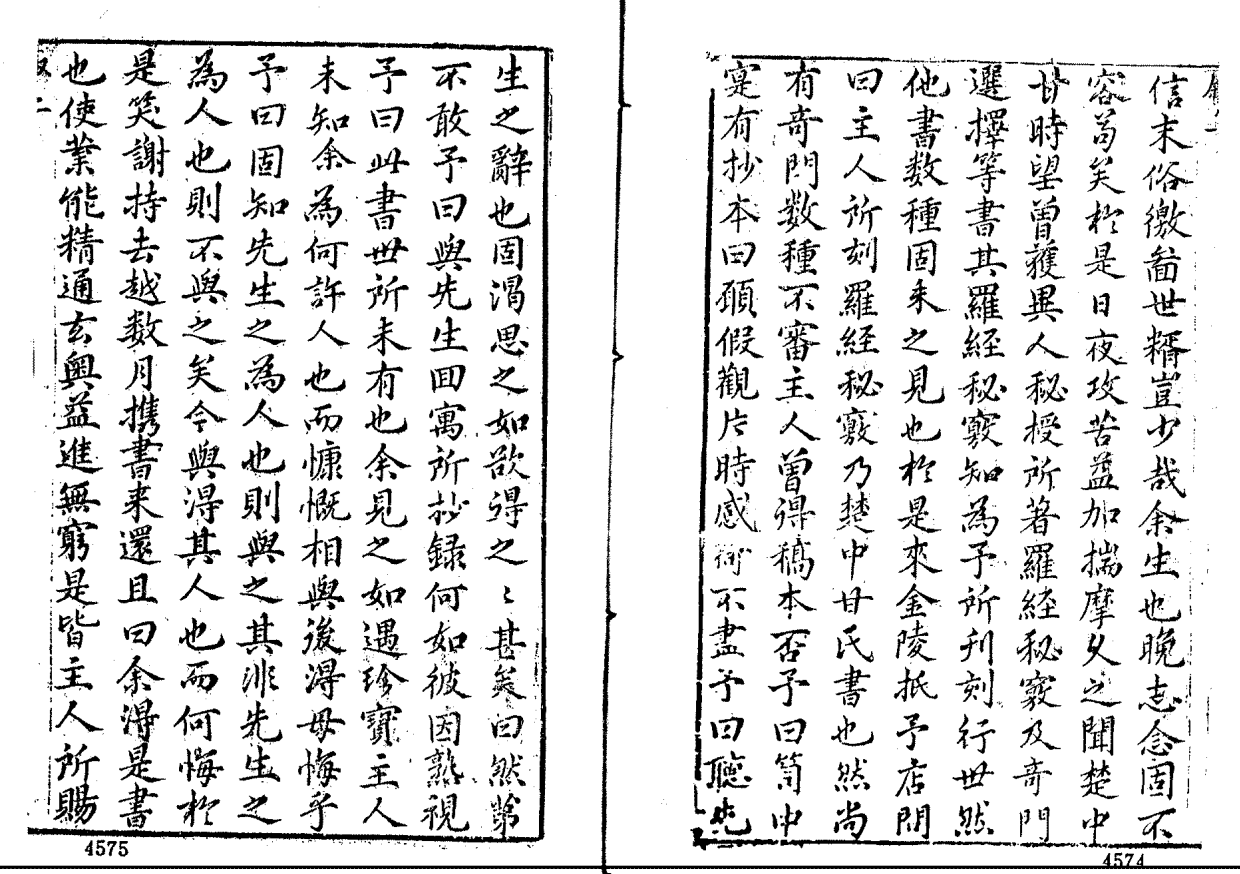 信末俗徼啚世糈豈少哉余生也晚志念固不
容茍矣於是日夜攻苦益加揣摩久之聞楚中
甘時望曾獲異人秘授所著羅経秘竅及奇門
選擇等書其羅経秘竅知為予所刋刻行世然
他書数種固未之見也於是來金陵抵予店問
曰主人所刻羅経秘竅乃楚中甘氏書也然尚
有奇門数種不審主人曾得稿本否予曰笥中
寔有抄本曰願假觀片時感不盡予曰聽先
4574
生之辭也固渴思之如欲得之〻甚矣曰然第
不敢予曰與先生囬寓所抄録何如彼因熟視
予曰此書世所未有也余見之如遇珍寶主人
未知余為何許人也而慷慨相與後得毋悔乎
予曰固知先生之為人也則與之其非先生之
為人也則不與之矣今與得其人也而何悔於
是笑謝持去越数月携書来還且曰余得是書
也使業能精通玄奥益進無窮是皆主人所賜
4575